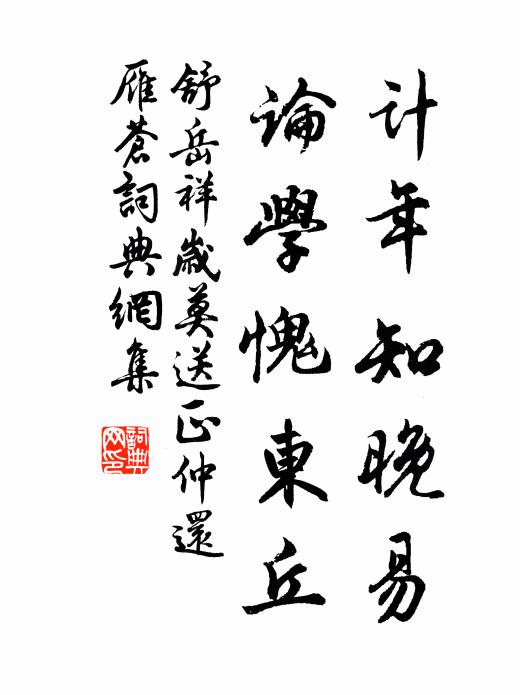 计年知晚易
論學愧東丘
舒岳祥歲莫送正仲還
雁蒼詞典網集
詞典网印